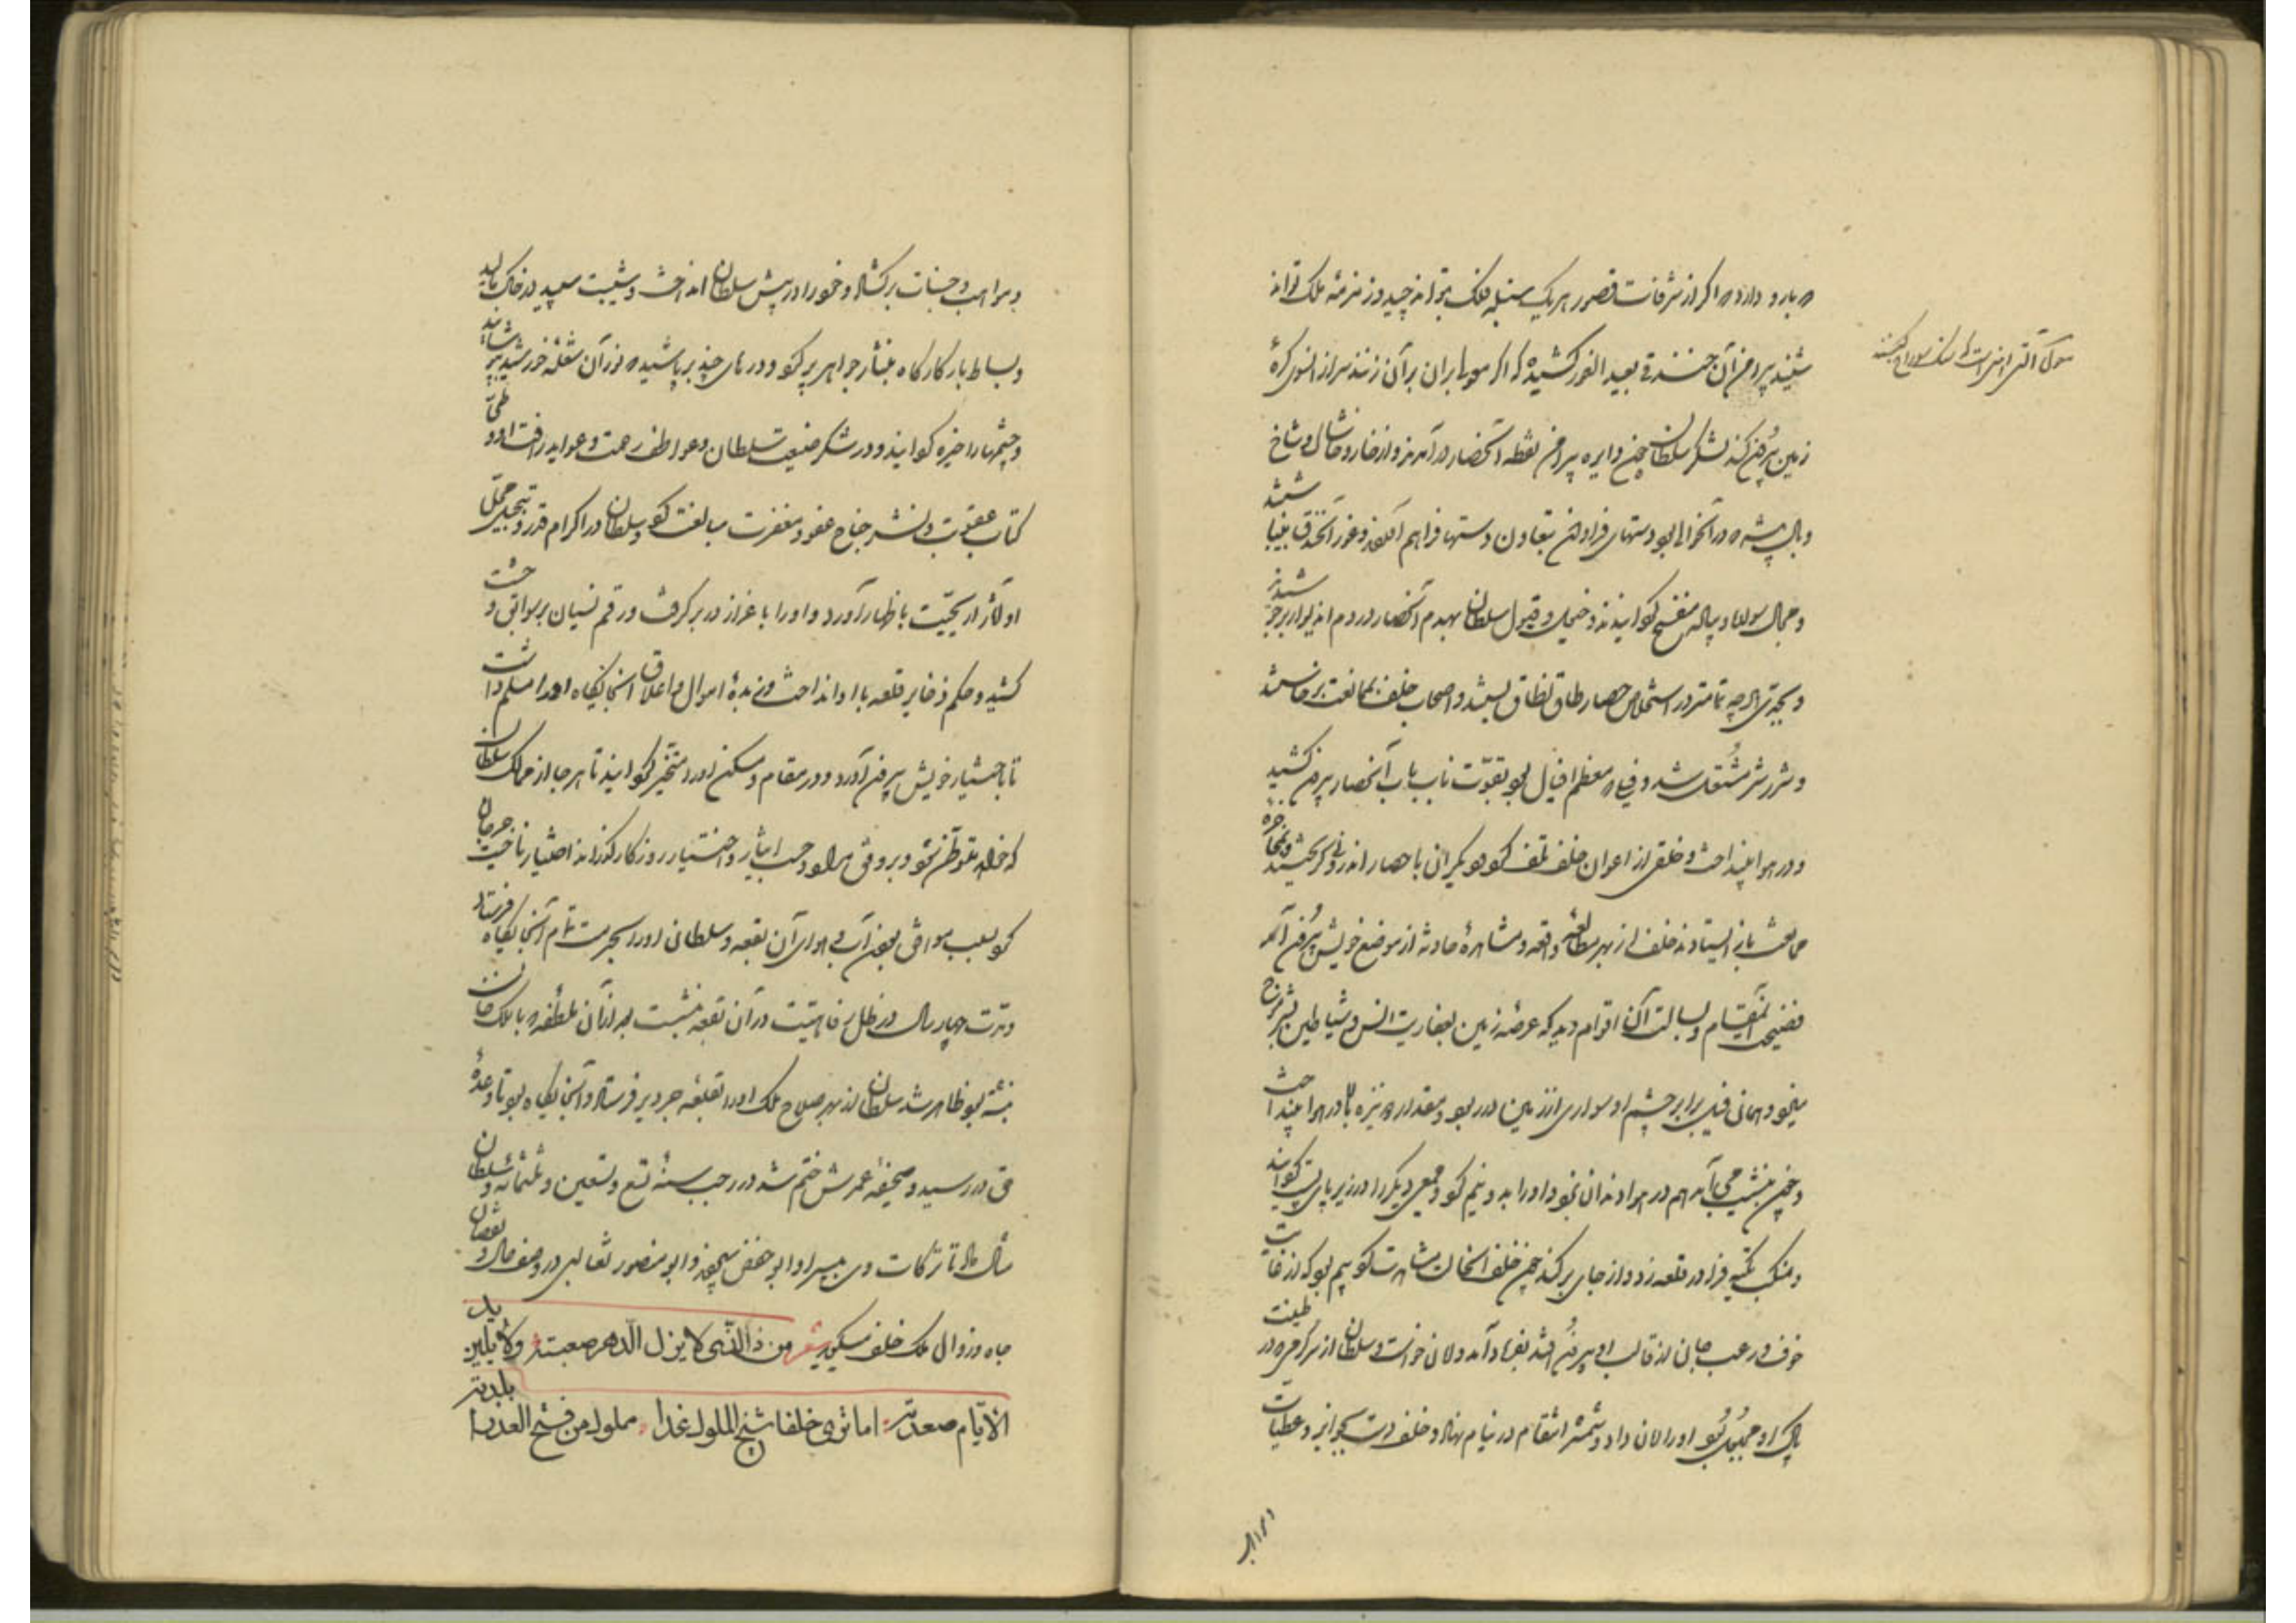 که بارو دارد که اگر از شرفات قصور هر یک سنبله فلک بتواند چید و زمزمه ملک تواند
شنید پیرامن آن خندقی بعید الغور کشیده که اگر موسا بران بر آن زنند سر از انسوی کره
زمین بیرون کند لشکر سلطان چون دایره پیرامن نقطه آنحصار درآمدند و از خار و خاشاک و شاخ
و بال بیشه که در آنحوالی بود دستهای فراوان بتعاون دستها فراهم آوردند و غور آنخندق بینباشتند
و مجال سوار و پیاده منفسح گردانیدند و خیل و فیول سلطان بهدم آنحصار در دم
و بجدی هرچه تمامتر در استخلاص حصار طاق نطاق ببستند و اصحاب خلف بممانعت برخاستند
و شرر شر مشتعل شد و فیلی که معظم افیال بود بقوت ناب باب آنحصار بیرون کشید
و در هوا بینداخت و خلقی از اعوان خلف تلف کرد و دیگران با حصار اندرونی گریختند و بمحاجزه
ممانعت باز ایستادند خلف از بهر مطالعه واقعه و مشاهده حادثه از موضع خویش بیرون آمد
فضیحت آنمقام و بسالت آن اقوام دید که عرصه زمین بعفاریت انس و شیاطین بشر موج
میزد و همانی فیلی برابر چشم او سواری از زمین در ربود و مقدار دو نیزه بالا در هوا بینداخت
و چون بنشیب می‌آمد هم در هوا دندان نمود و او را به دو نیم کرد و جمعی دیگر را در زیر پای پست گردانید
و بمنکب تکیه فرا در قلعه زد و از جای برکند چون خلف آنحال مشاهدت کرد بیم بود که از غایت
خوف و رعب جان از قالب او بیرون افتد بفریاد آمد و امان خواست و سلطان از سر کرمی که در طینت
پاک او مجبول بود او را امان داد و شمشیر انتقام در نیام نهاد و خلف دست بجوایز و عطیات
و مواهب
و مواهب و حسنات برگشاد و خود را در پیش سلطان انداخت و شیبت سپید در خاک مالید
و بساط بارگاه بنثار جواهر پر کرد و درهای چند بر پاشید که نور آن شعله خورشید بنشاند
و چشمها را خیره گرداند و در شکر صنیعت سلطان و عواطف رحمت و عواید رأفت او و طی
کتاب عقوبت و نشر جناح عفو و مغفرت مبالغت کرد و سلطان در اکرام قدر و تبجیل محل
او آثار اریحیت باظهار آورد و او را باعزاز در بر گرفت و رقم نسیان بر سوابق وحشت
کشید و حکم ذخایر قلعه با او انداخت و زبده اموال و اعلاق آنجایگاه او را مسلم داشت
تا باختیار خویش بیرون آورد و در مقام و مسکن او را مخیر گردانید تا هر جا از ممالک سلطان
که خواهد توطن نمود و بر وفق مراد و حسب ایثار و اختیار روزگار گذراند اختیار ناحیت جوزجان
کرد بسبب موافقت آب و هوای آن بقعه و سلطان او را بحرمت تمام آنجایگاه فرستاد
و مدت چهار سال در ظل رفاهیت در آن بقعه بنشست بعد از آن ملطفه که بایلک خان
نبشته بود ظاهر شد سلطان از بهر صلاح ملک او را بقلعه جردیز فرستاد و آنجایگاه بود تا وعده
حق در رسید و صحیفه عمرش ختم شد در رجب سنه تسع و تسعین و ثلثمائه و سلطان
مثال داد تا ترکات وی بپسر او ابو حفص سپردند و ابو منصور ثعالبی در وصف حال و نقصان
جاه و زوال ملک خلف میگوید شعر من ذا الذی لا یذل الدهر صعبته ولا یلین ید
الایام صعدته اما تری خلفا شیخ الملوک غدا مملوک من فتح العذراء بلدته